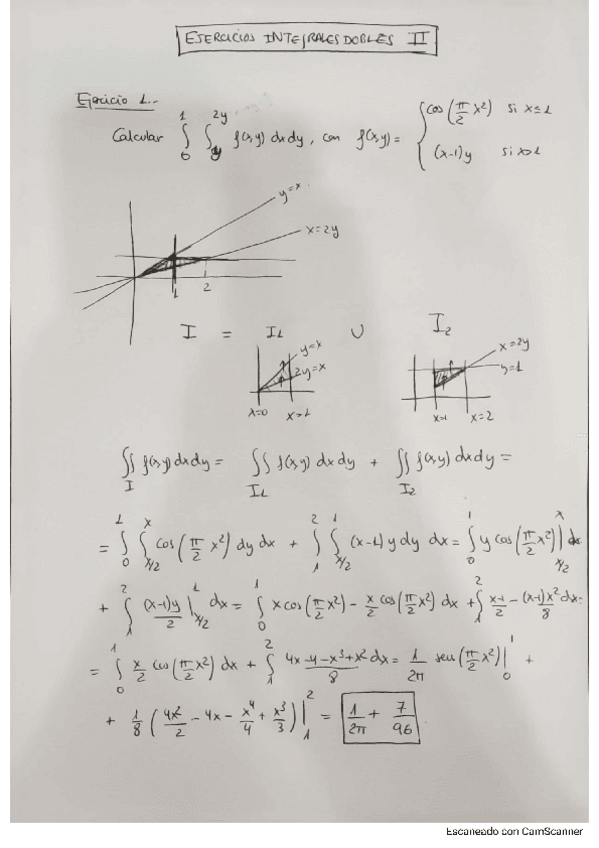 EJERCICIOS INTEGRALES DOBLES II
Ejercicio 1.-
Calcular ∫₀¹ ∫_y^{2y} f(x,y) dx dy, con f(x,y) = { cos(π/2 x²) si x≤1
(x-1)y si x>1
y=x
x=2y
1 2
I = I1 ∪ I2
y=x
2y=x
x=0 x=1
x=2y
y=1
x=1 x=2
∬_I f(x,y) dx dy = ∬_I1 f(x,y) dx dy + ∬_I2 f(x,y) dx dy =
= ∫₀¹ ∫_{x/2}^x cos(π/2 x²) dy dx + ∫₁² ∫_{x/2}^1 (x-1) y dy dx = ∫₀¹ y cos(π/2 x²) |_{x/2}^x dx
+ ∫₁² (x-1)y/2 |_{x/2}^1 dx = ∫₀¹ x cos(π/2 x²) - x/2 cos(π/2 x²) dx + ∫₁² x-1/2 - (x-1)x²/8 dx =
= ∫₀¹ x/2 cos(π/2 x²) dx + ∫₁² 4x-4-x³+x²/8 dx = 1/2π sen(π/2 x²) |₀¹ +
+ 1/8 (4x²/2 - 4x - x⁴/4 + x³/3) |₁² = 1/2π + 7/96
Escaneado con CamScanner